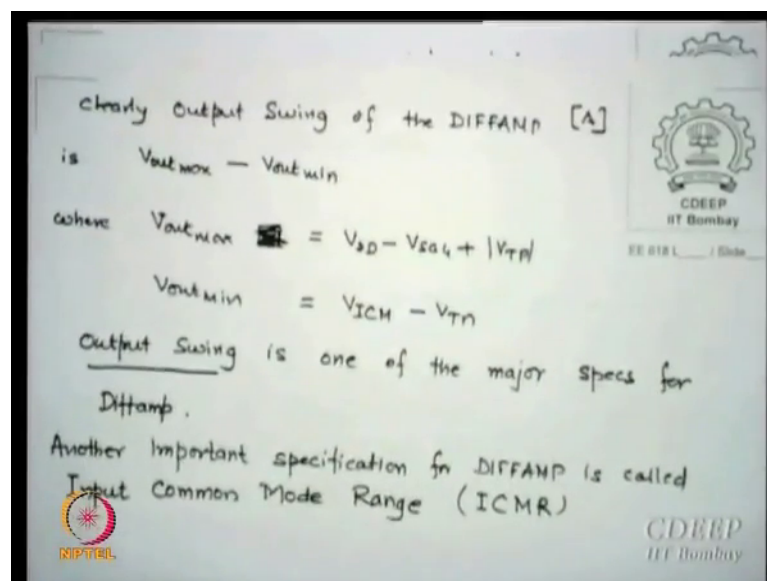 Clearly Output Swing of the DIFFAMP [A]
is Vout max - Vout min
where Vout max = VDD - VSG4 + |VTP|
Vout Min = VICM - VTn
Output Swing is one of the major specs for
Diffamp.
Another Important specification for DIFFAMP is called
Input Common Mode Range (ICMR)
CDEEP
IIT Bombay
EE 618 L / Slide
NPTEL
CDEEP
IIT Bombay